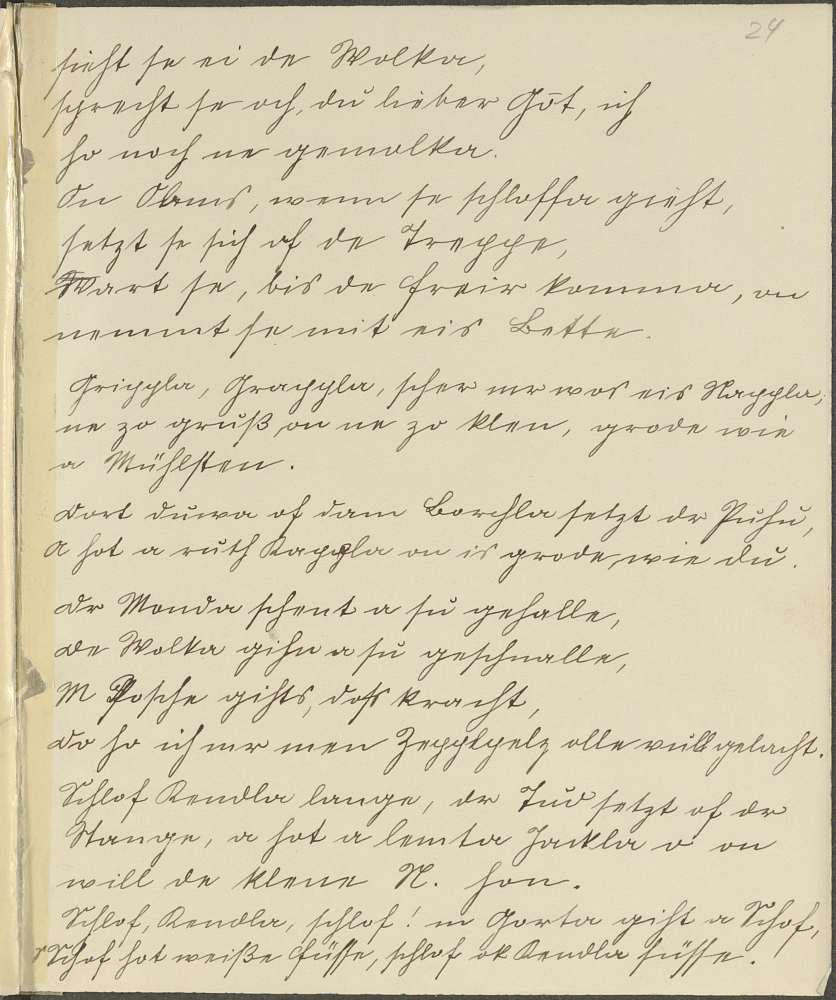 24
sieht se ei de Wolka,
sprecht se och, du lieber Gōt, ich
ho noch ne gemolka.
On Obms, wenn se schloffa gieht,
setzt se sich of de Treppe,
Wart se, bis de Freir komma, on
nemmt se mit eis Bette.
Grippla, Grappla, scher mr wos eis Nappla;
ne zo gruß, on ne zo klen, grode wie
a Mühlsten.
Dort duwa of dam Borchla setzt dr Puhu,
A hot a ruth Kappla on is grode, wie du.
Dr Monda schent a su gehalle,
De Wolka gihn a su geschnalle,
M Posche gihts, doss kracht,
Do ho ich mr men Zepplpelz olle vull gelacht.
Schlof Kendla lange, dr Tud setzt of dr
Stange, a hot a lemta Jackla o on
will de klene N. hon.
Schlof, Kendla, schlof! m Gorta giht a Schof,
's Schof hot weiße Füsse, schlof ok Kendla süsse.